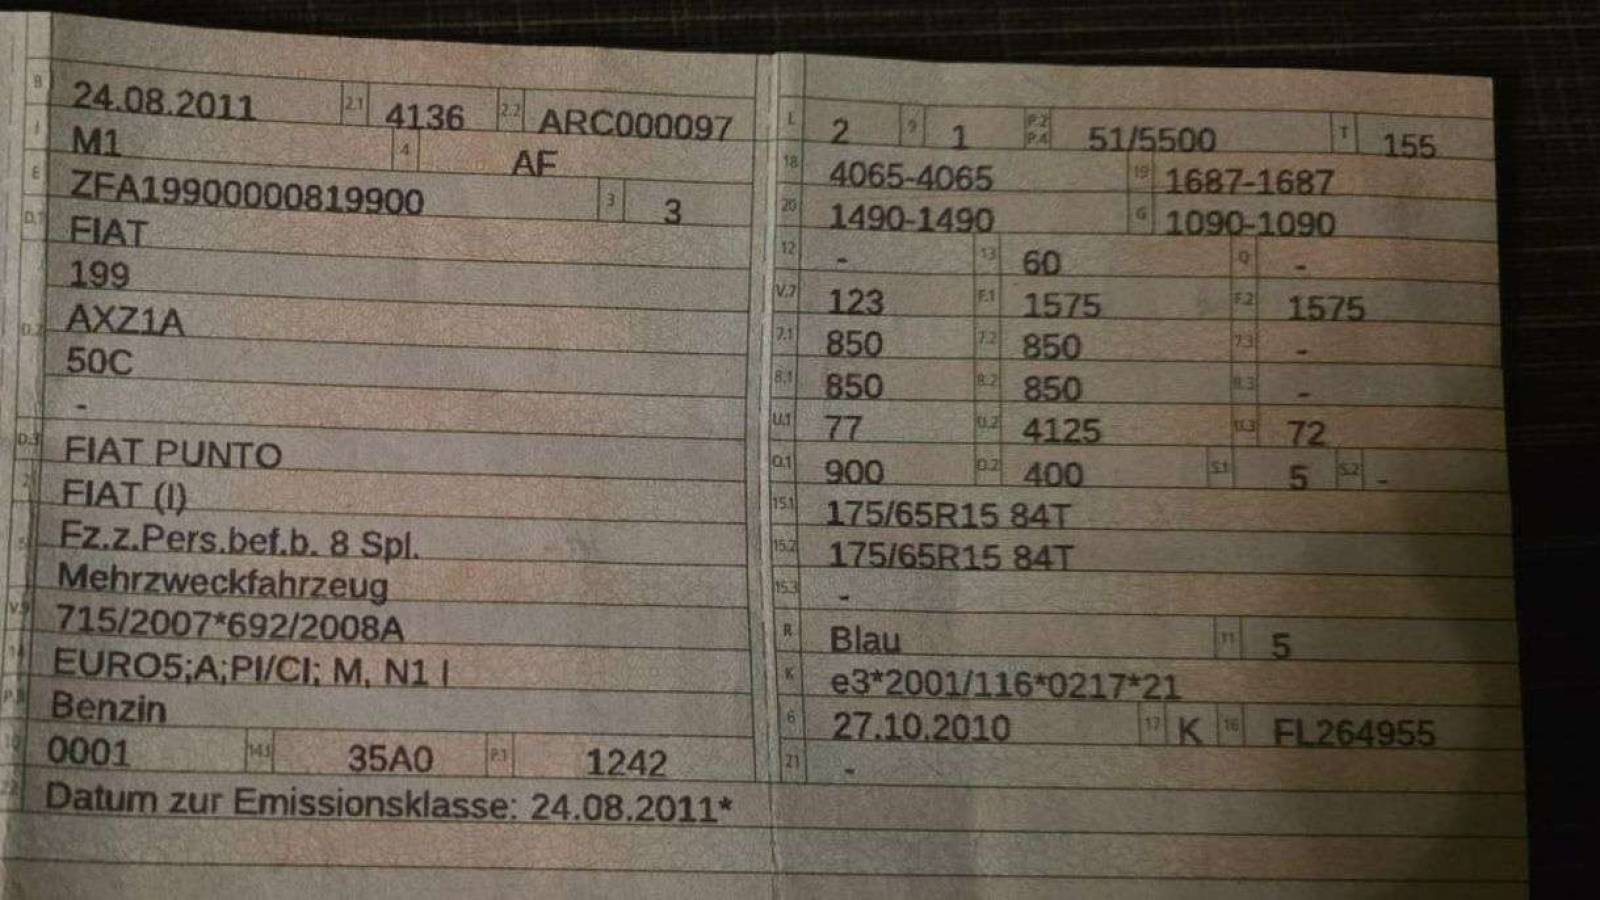 B 24.08.2011 2.1 4136 2.2 ARC000097
J M1 4 AF
E ZFA19900000819900 3 3
D.1 FIAT
199
D.2 AXZ1A
50C
-
D.3 FIAT PUNTO
2 FIAT (I)
5 Fz.z.Pers.bef.b. 8 Spl.
Mehrzweckfahrzeug
V.9 715/2007*692/2008A
14 EURO5;A;PI/CI; M, N1 I
P.3 Benzin
10 0001 14.1 35A0 P.1 1242
22 Datum zur Emissionsklasse: 24.08.2011*
L 2 9 1 P.2 P.4 51/5500 T 155
18 4065-4065 19 1687-1687
20 1490-1490 G 1090-1090
12 - 13 60 Q -
V.7 123 F.1 1575 F.2 1575
7.1 850 7.2 850 7.3 -
8.1 850 8.2 850 8.3 -
U.1 77 U.2 4125 U.3 72
O.1 900 O.2 400 S.1 5 S.2 -
15.1 175/65R15 84T
15.2 175/65R15 84T
15.3 -
R Blau 11 5
K e3*2001/116*0217*21
6 27.10.2010 17 K 16 FL264955
21 -